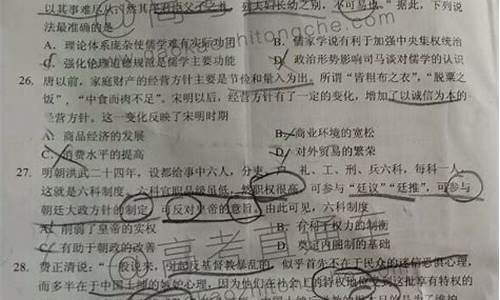 法最准确的是
A. 理论体系庞杂使儒学难有实际功用
B. 儒家学说有利于加强中央集权统治
C. 强化伦理道德规范是儒学主要功能
D. 政治形势影响司马谈对儒学的认识
26. 唐以前,家庭财产的经营方针主要是节俭和量入为出。所谓“皆粗布之衣”,“脱粟之
饭”,“中食而肉不足”。宋明以后,经营方针有了一定的变化,增加了以诚信为本的
经营方针。这一变化反映了宋明时期
A. 商品经济的发展
B. 商业环境的宽松
C. 消费水平的提高
D. 对外贸易的繁荣
27. 明朝洪武二十四年,设都给事中六人,分吏、户、礼、工、刑、兵六科,每科一人,
这就是六科制度。六科官职品级虽低,然职权很高,可参与“廷议”“廷推”,可参与
朝廷大政方针的制定,可反对皇帝的意旨。由此可见,六科制度
A. 削弱了皇帝的实权
B. 有利于权力的制衡
C. 有助于朝政的改善
D. 奠定内阁制的基础
28. 费正清说:“一般说来,对起反基督教暴乱的,似乎首先不在于民众的迷信恐惧心理,
而多半在于中国士绅的嫉妒心理,因为他们在社会上的特权地位受到这批享有特权的